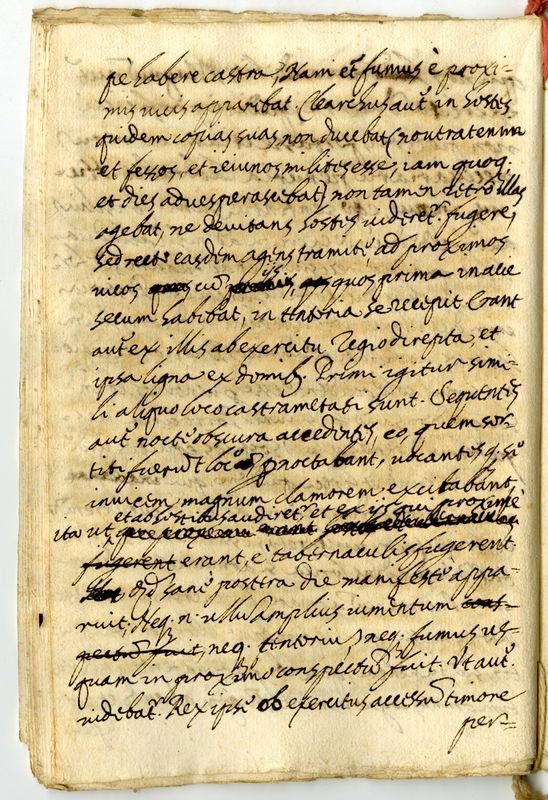 pè habere castra, Nam et fumus è proxi=
mis vicis apparebat. Clearchus aut in hostes
quidem copias suas non ducebat (noverat enim
et fessos, et ieiunos milites esse, iam quoq.
et dies advesperascebat) non tamen retrò illas
agebat, ne devitans hostes videretr fugere,
sed recte easdem agens tramite ad proximos
vicos cū ijs, quos prima in acie
secum habebat, in tentoria se recepit. Erant
aut ex illis ab exercitu Regio direpta, et
ipsa ligna ex domibꝫ. Primi igitur simi=
li aliquo loco castrametati sunt. Sequentes
aut nocte obscura accedentes, eo, quem sor
titi fuerūt locū pnoctabant, vocantesq. se
invicem magnum clamorem excitabant,
et ab hostibus audiretr, et ex ijs qui proximè
ita ut
fugerent erant, è tabernaculis fugerent.
Qd sane postera die manifeste appa=
ruit; Neq. n. ullū amplius iumentum cons=
pectū fuit, neq. tentoriū, neq. fumus us=
quam in proximo conspectus fuit. Ut aut
videbatr. Rex ipse ob exercitus accessū timore
per=